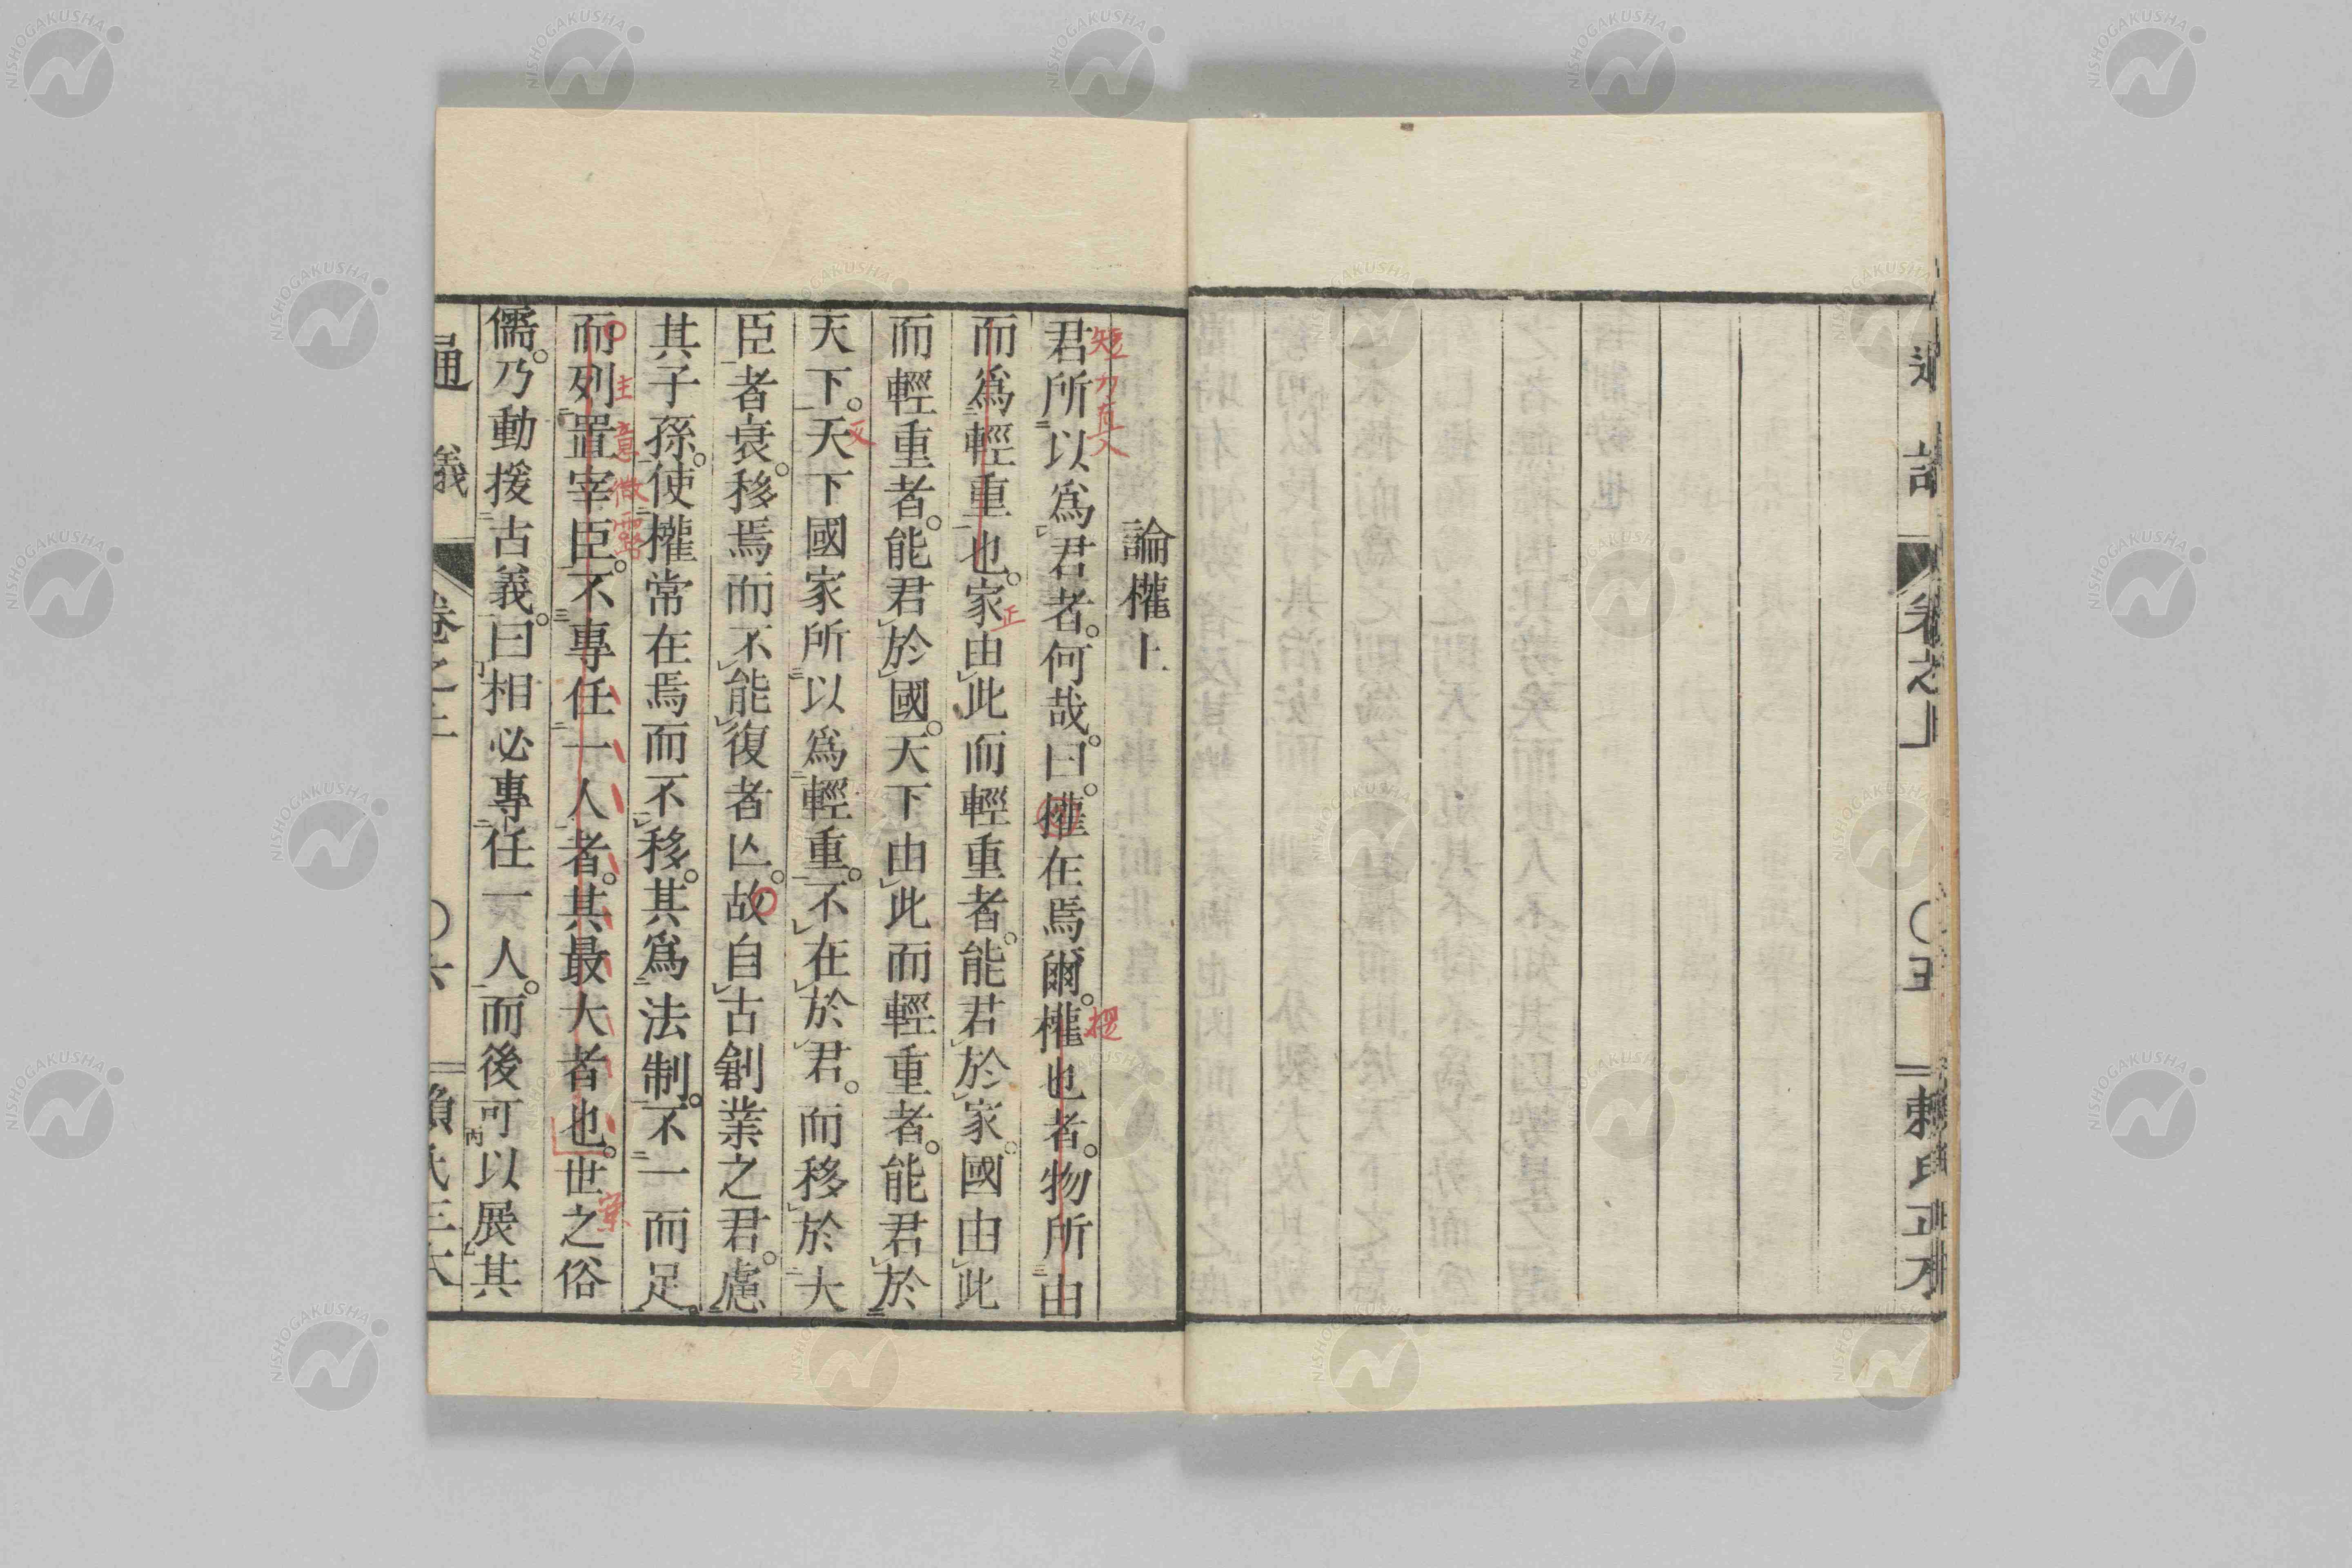 論權上
君所以爲君者。何哉。曰。權在焉爾。權也者。物所由
而爲輕重也。家由此而輕重者。能君於家。國由此
而輕重者。能君於國。天下由此而輕重者。能君於
天下。天下國家所以爲輕重。不在於君。而移於大
臣者衰。移焉而不能復者亾。故自古創業之君。慮
其子孫。使權常在焉而不移。其爲法制。不一而足。
而列置宰臣。不專任一人者。其最大者也。世之俗
儒。乃動援古義。曰相必專任一人。而後可以展其
通議
卷之上
〇六
賴氏正本
通議
卷之上
〇五
賴氏正本
短刀直入
提
正
反
主意微露
案
NISHOGAKUSHA